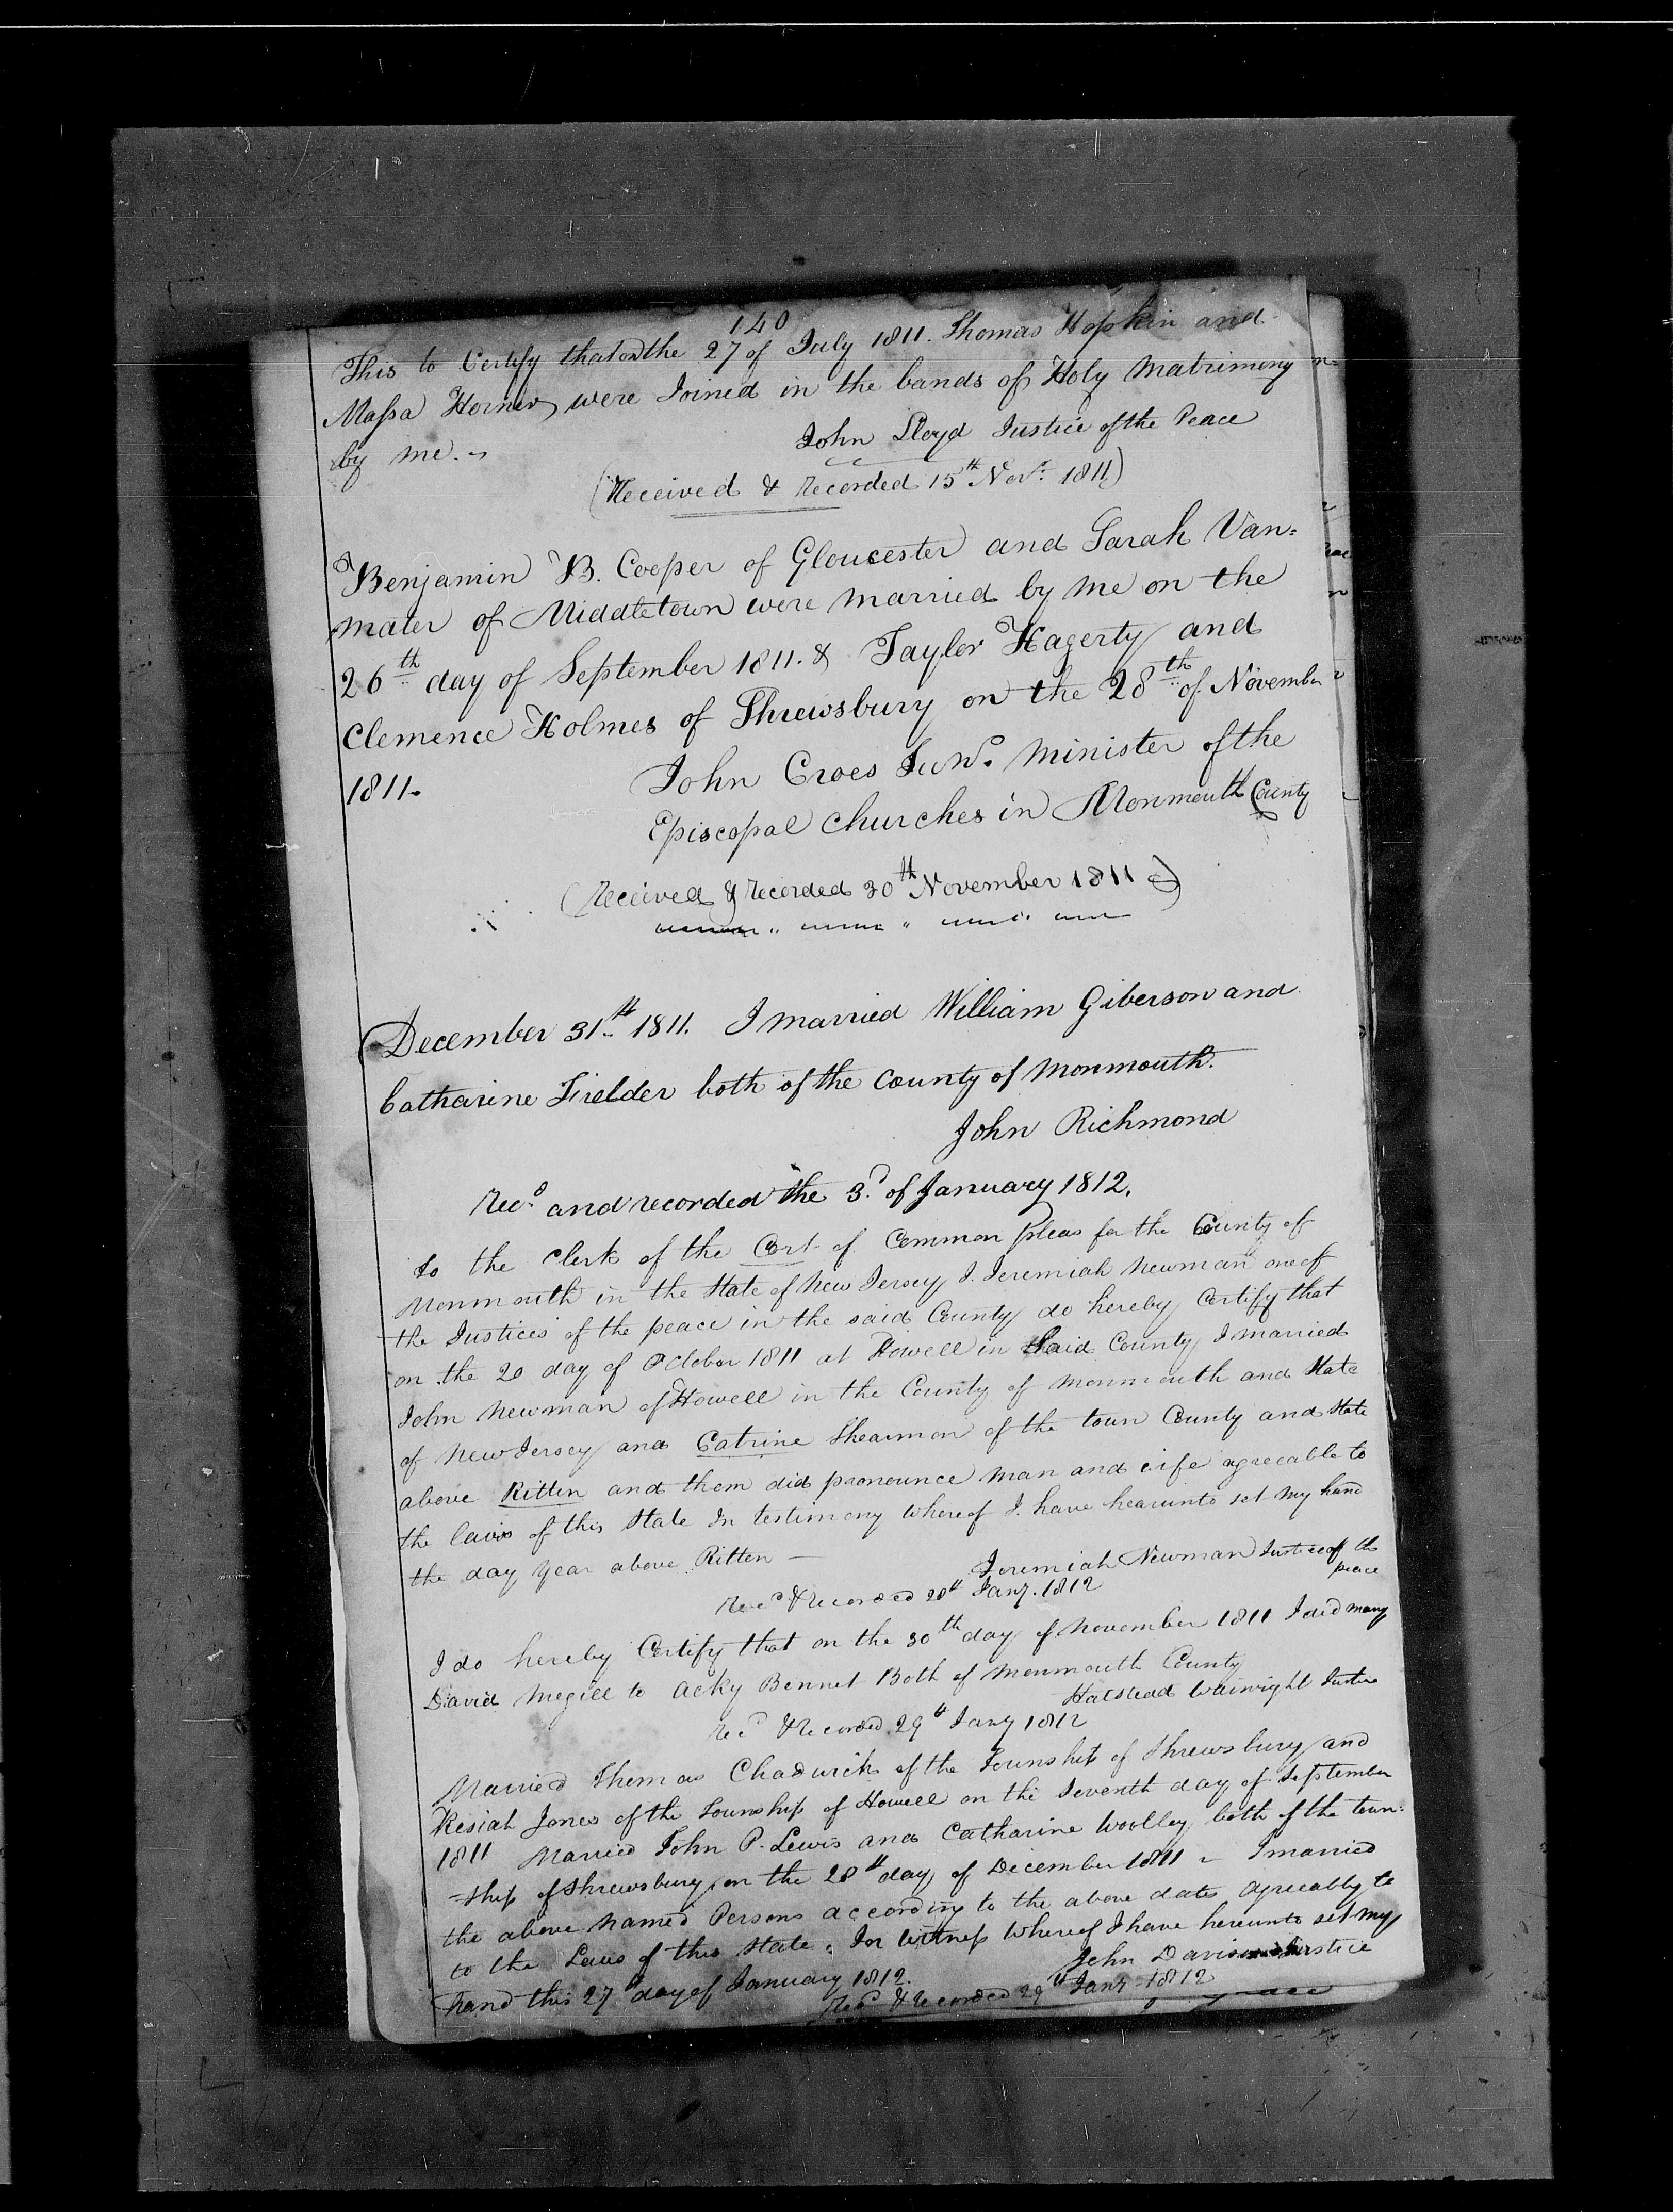 140
This to Certify that on the 27 of July 1811. Thomas Hopkin and
Massa Horner were Joined in the bands of Holy Matrimony
by me.
John Lloyd Justice of the Peace
(Received & Recorded 15th Novr. 1811)
Benjamin B. Cooper of Gloucester and Sarah Van=
mater of Middletown were married by me on the
26th day of September 1811. & Taylor Hagerty and
Clemence Holmes of Shrewsbury on the 28th of November
1811.
John Croes Junr. Minister of the
Episcopal Churches in Monmouth County
(Received & Recorded 30th November 1811)
December 31th 1811. I married William Giberson and
Catharine Fielder both of the County of Monmouth.
John Richmond
Recd and recorded the 3d of January 1812.
to the Clerk of the Cort of Common pleas for the County of
Monmouth in the State of New Jersey, I. Jeremiah Newman one of
the Justices of the peace in the said County do hereby Certify that
on the 20 day of October 1811 at Howell in said County I married
John Newman of Howell in the County of Monmouth and State
of New Jersey and Catrine Shearman of the town County and State
above Ritten and them did pronounce man and wife agreeable to
the laws of this State In testimony whereof I. have hearunto set my hand
the day year above Ritten —
Jeremiah Newman Justice of the
peace
Recd & Recorded 28th Jany. 1812
I do hereby Certify that on the 30th day of November 1811 I did marry
David Megill to Acky Bennet Both of Monmouth County
Halstead Wainright Justice
Recd & Recorded 29th Jany 1812
Married Thomas Chadwick of the Township of Shrewsbury and
Kesiah Jones of the Township of Howell on the Seventh day of September
1811 Married John P. Lewis and Catharine Woolley both of the town=
=ship of Shrewsbury on the 28th day of December 1811 - I married
the above named Persons according to the above dates agreeably to
to the Laws of this State. In Witness Whereof I have hereunto set my
hand this 27th day of January 1812.
John Davison Justice
Recd & Recorded 29th Jany 1812